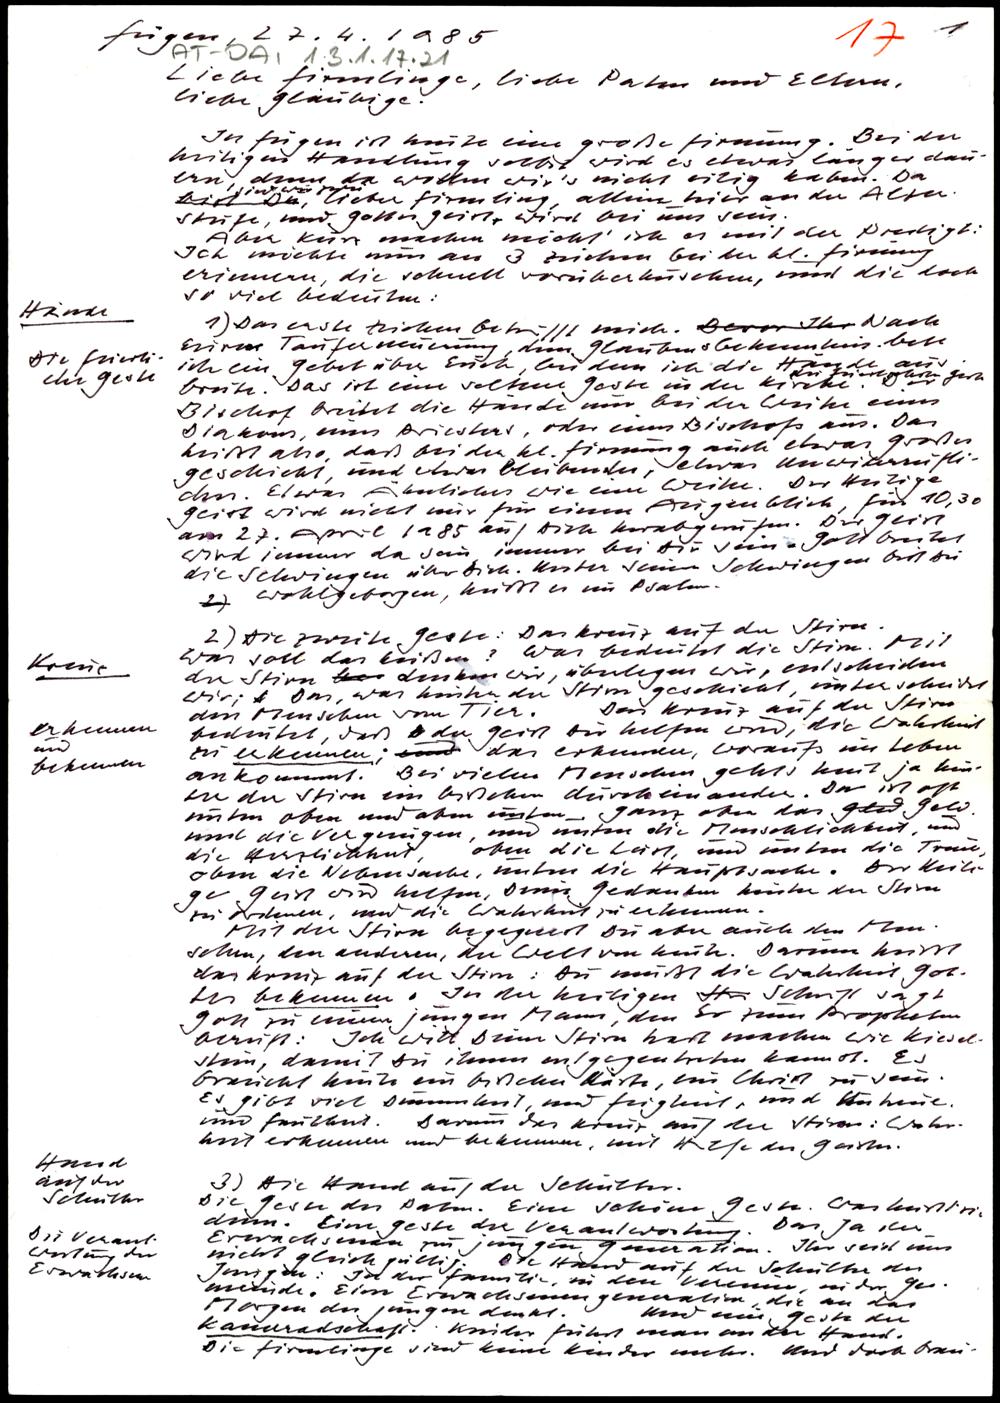 Fügen, 27.4.1985
17 1
AT-DA, 13.1.17.21
Liebe Firmlinge, liebe Paten und Eltern,
liebe Gläubige.
In Fügen ist heute eine große Firmung. Bei der
heiligen Handlung selbst wird es etwas länger dau-
ern, denn da wollen wir's nicht eilig haben. Da
bist Du, lieber Firmling, allein hier an der Altar-
stufe, und Gottes Geist wird bei uns sein.
Aber kurz machen möcht' ich es mit der Predigt:
Ich möchte nur an 3 Zeichen bei der hl. Firmung
erinnern, die schnell vorüberhuschen, und die doch
so viel bedeuten:
Hände
Die feierli-
che Geste
1) Das erste Zeichen betrifft mich. Bevor Ihr Nach
Eurer Tauferneuerung, dem Glaubensbekenntnis bete
ich ein Gebet über Euch, bei dem ich die Hände aus-
breite. Das ist eine seltene Geste in der Kirche. Der
Bischof breitet die Hände nur bei der Weihe eines
Diakons, eines Priesters, oder eines Bischofs aus. Das
heißt also, daß bei der hl. Firmung auch etwas großes
geschieht, und etwas bleibendes, etwas unwiderrufli-
ches. Etwas Ähnliches wie eine Weihe. Der Heilige
Geist wird nicht nur für einen Augenblick, für 10,30
am 27. April 1985 auf Dich herabgerufen. Der Geist
wird immer da sein, immer bei Dir sein. Gott breitet
die Schwingen über Dich. Unter seinen Schwingen bist Du
2) wohlgeborgen, heißt es im Psalm.
Kreuz
erkennen
und
bekennen
2) Die zweite Geste: Das Kreuz auf der Stirn.
Was soll das heißen? Was bedeutet die Stirn. Mit
der Stirn denken wir, überlegen wir, entscheiden
wir; Das, was hinter der Stirn geschieht, unterscheidet
den Menschen vom Tier. Das Kreuz auf der Stirn
bedeutet, daß der Geist Dir helfen wird, die Wahrheit
zu erkennen; und das erkennen, worauf's im Leben
ankommt. Bei vielen Menschen geht's heut ja hin-
ter der Stirn ein bißchen durcheinander. Da ist oft
unten oben und oben unten. Ganz oben das Geld
und die Vergnügen, und unten die Menschlichkeit, und
die Herzlichkeit, oben die Lust, und unten die Treue,
oben die Nebensache, unten die Hauptsache. Der Heili-
ge Geist wird helfen, Deine Gedanken hinter der Stirn
zu ordnen, und die Wahrheit zu erkennen.
Mit der Stirn begegnest Du aber auch den Men-
schen, den anderen, der Welt von heute. Darum heißt
das Kreuz auf der Stirn: Du mußt die Wahrheit Got-
tes bekennen. In der heiligen Schrift sagt
Gott zu einem jungen Mann, den Er zum Propheten
beruft: Ich will Deine Stirn hart machen wie Kiesel-
stein, damit Du ihnen entgegentreten kannst. Es
braucht heute ein bißchen Härte, ein Christ zu sein.
Es gibt viel Dummheit, und Feigheit, und Untreue,
und Faulheit. Darum das Kreuz auf der Stirn: Wahr-
heit erkennen und bekennen, mit Hilfe des Geistes.
Hand
auf der
Schulter
Die Verant-
wortung der
Erwachsenen
3) Die Hand auf der Schulter.
Die Geste des Paten. Eine schöne Geste. Was heißt sie
denn. Eine Geste der Verantwortung. Das Ja der
Erwachsenen zur jungen Generation. Ihr seid uns
nicht gleichgültig. Die Hand auf der Schulter der
Jungen: In der Familie, in den Vereinen, in der Ge-
meinde. Eine Erwachsenengeneration, die an das
Morgen der Jungen denkt. Und eine Geste der
Kameradschaft. Kinder führt man an der Hand.
Die Firmlinge sind keine Kinder mehr. Und doch brau-